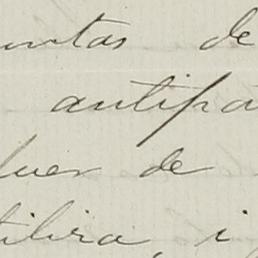 untas de
antipa
luer de
tilira, i